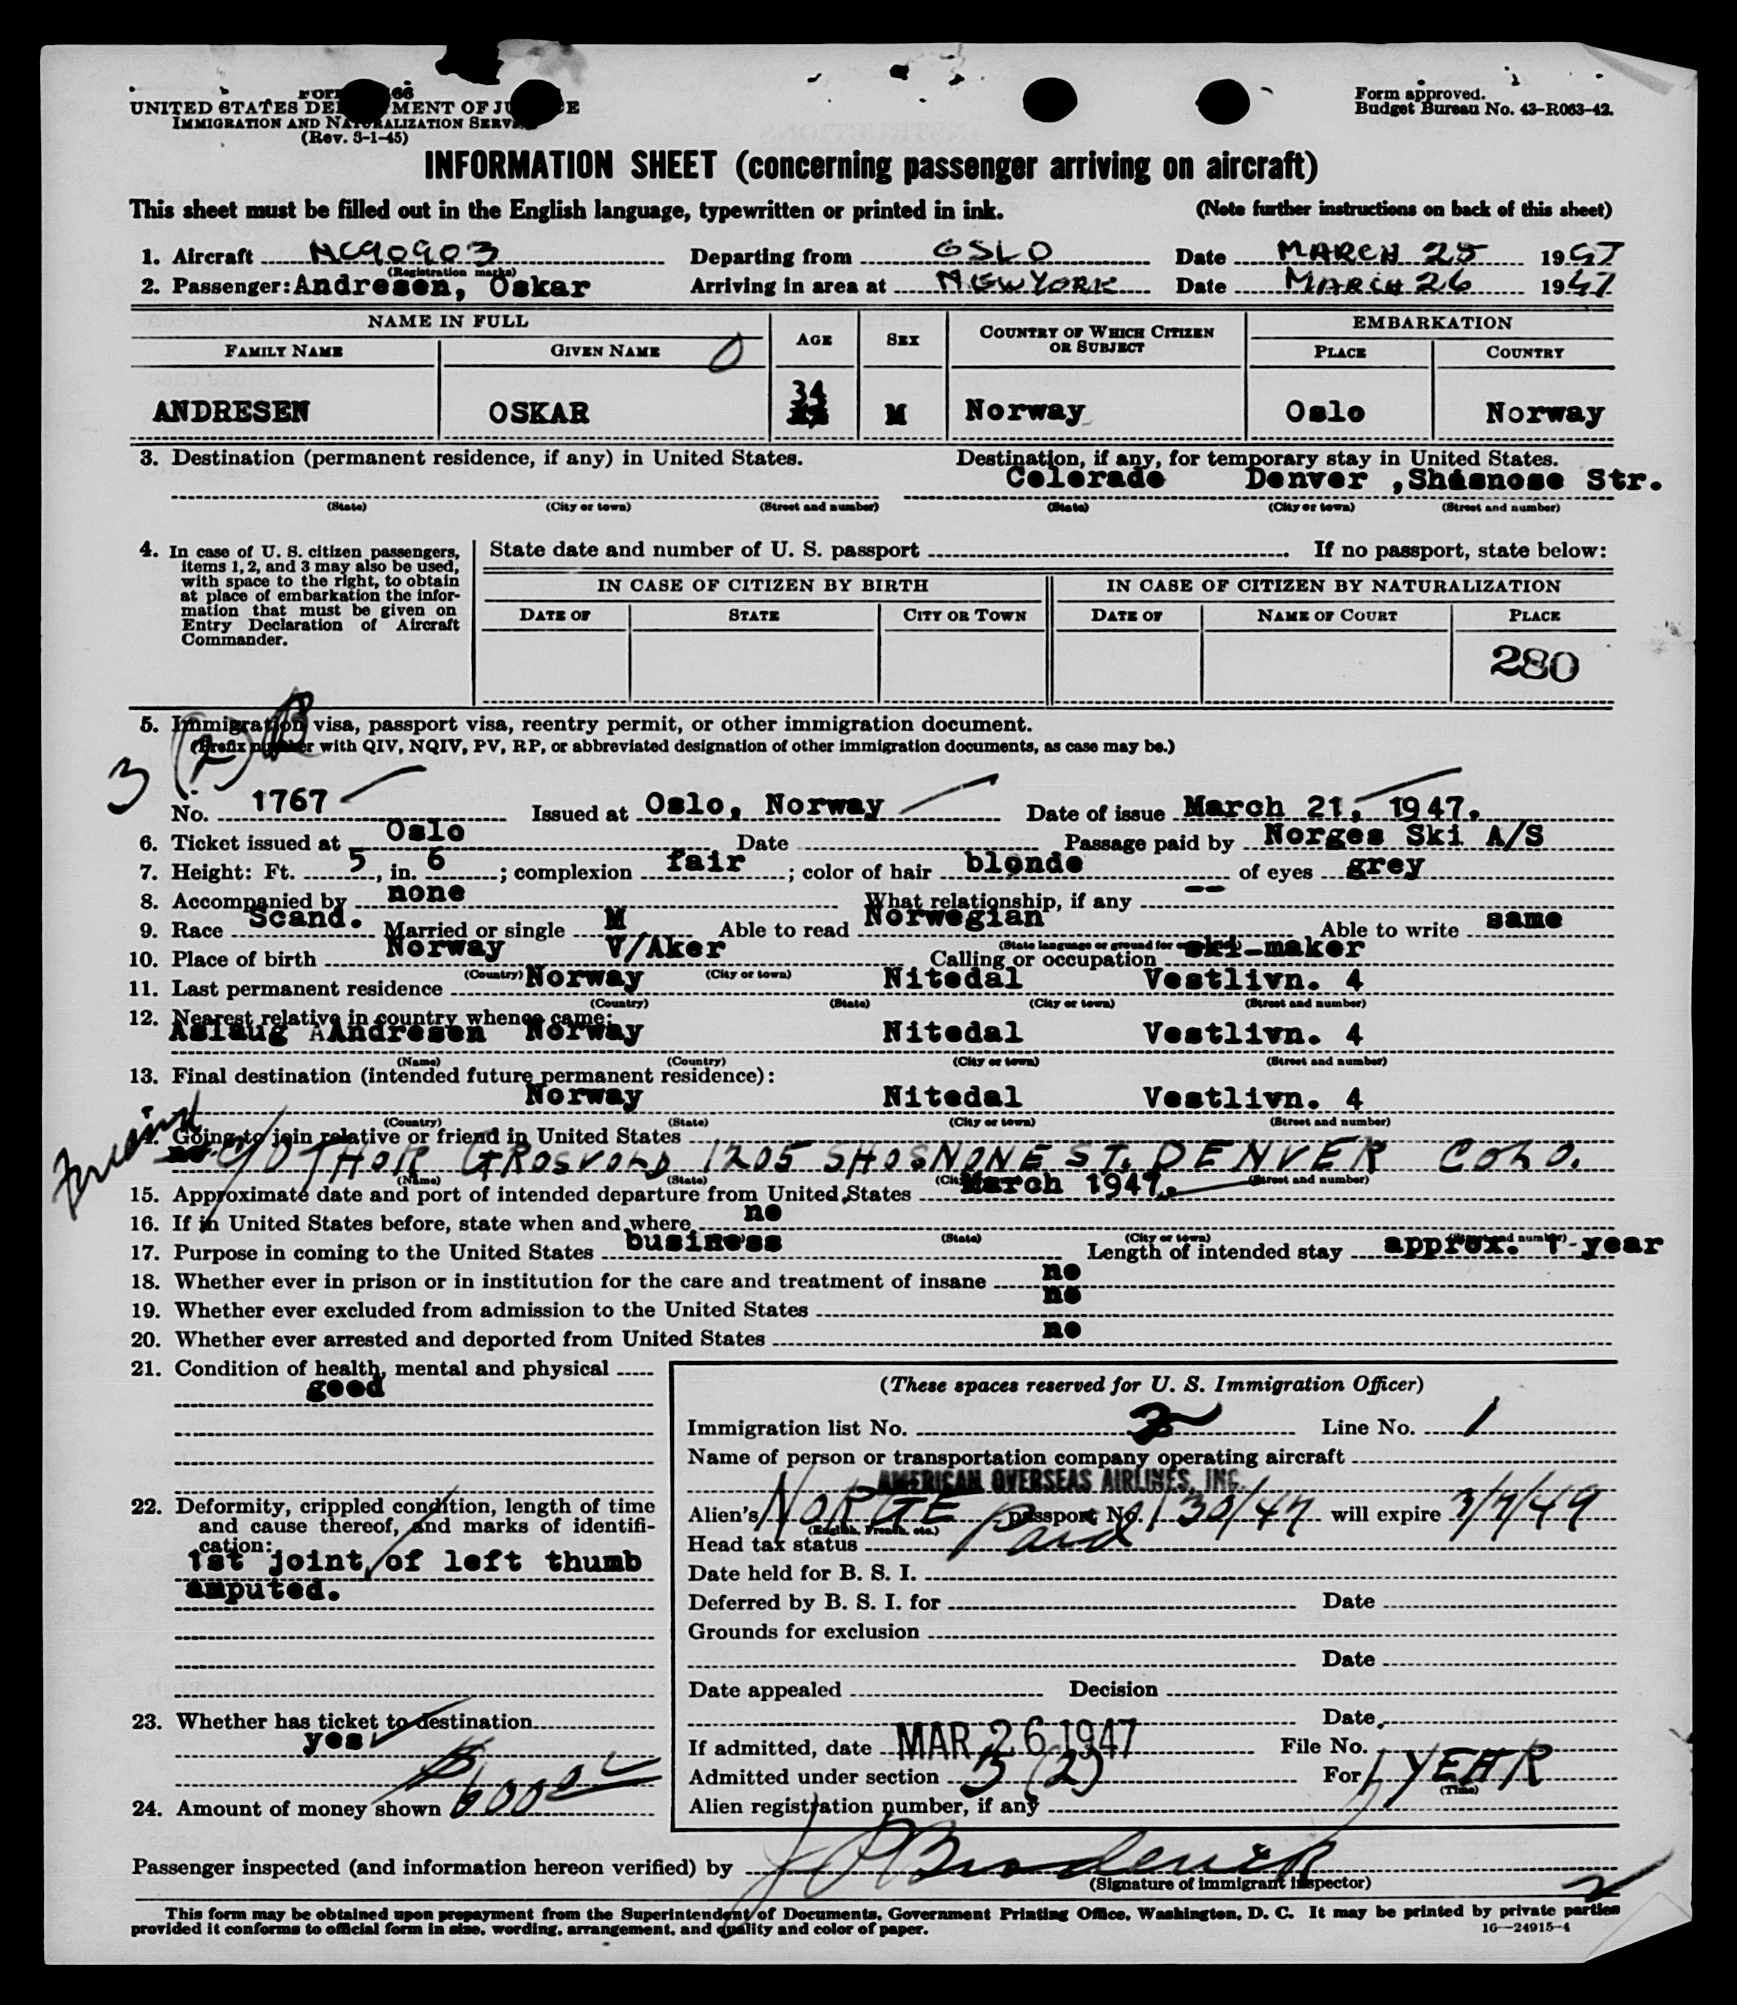 UNITED STATES DEPARTMENT OF JUSTICE
IMMIGRATION AND NATURALIZATION SERVICE
(Rev. 3-1-45)
Form approved.
Budget Bureau No. 43-R063-42.
INFORMATION SHEET (concerning passenger arriving on aircraft)
This sheet must be filled out in the English language, typewritten or printed in ink. (Note further instructions on back of this sheet)
1. Aircraft NC90903 Departing from OSLO Date MARCH 25 1947
(Registration marks)
2. Passenger: Andresen, Oskar Arriving in area at NEW YORK Date MARCH 26 1947
NAME IN FULL AGE SEX COUNTRY OF WHICH CITIZEN OR SUBJECT EMBARKATION
FAMILY NAME GIVEN NAME 0 PLACE COUNTRY
34
ANDRESEN OSKAR M Norway Oslo Norway
3. Destination (permanent residence, if any) in United States. Destination, if any, for temporary stay in United States.
Colorado Denver ,Shosnose Str.
(State) (City or town) (Street and number) (State) (City or town) (Street and number)
4. In case of U. S. citizen passengers, items 1, 2, and 3 may also be used, with space to the right, to obtain at place of embarkation the information that must be given on Entry Declaration of Aircraft Commander.
State date and number of U. S. passport If no passport, state below:
IN CASE OF CITIZEN BY BIRTH IN CASE OF CITIZEN BY NATURALIZATION
DATE OF STATE CITY OR TOWN DATE OF NAME OF COURT PLACE
280
5. Immigration visa, passport visa, reentry permit, or other immigration document.
(Prefix number with QIV, NQIV, PV, RP, or abbreviated designation of other immigration documents, as case may be.)
3 (2) B
No. 1767 Issued at Oslo, Norway Date of issue March 21, 1947.
6. Ticket issued at Oslo Date Passage paid by Norges Ski A/S
7. Height: Ft. 5, in. 6; complexion fair; color of hair blonde of eyes grey
8. Accompanied by none What relationship, if any --
9. Race Scand. Married or single M Able to read Norwegian Able to write same
10. Place of birth Norway V/Aker Calling or occupation ski-maker
(Country) (City or town)
11. Last permanent residence Norway Nitedal Vestlivn. 4
(Country) (State) (City or town) (Street and number)
12. Nearest relative in country whence came:
Aslaug A Andresen Norway Nitedal Vestlivn. 4
(Name) (Country) (City or town) (Street and number)
13. Final destination (intended future permanent residence):
Norway Nitedal Vestlivn. 4
(Country) (State) (City or town) (Street and number)
friend
14. Going to join relative or friend in United States
no C/O THOR GROSVOLD 1205 SHOSNONE ST. DENVER COLO.
(Name) (State) (Street and number)
15. Approximate date and port of intended departure from United States March 1947.
16. If in United States before, state when and where no
(State) (City or town) (Street and number)
17. Purpose in coming to the United States business Length of intended stay approx. 1-year
18. Whether ever in prison or in institution for the care and treatment of insane no
19. Whether ever excluded from admission to the United States no
20. Whether ever arrested and deported from United States no
21. Condition of health, mental and physical
good
22. Deformity, crippled condition, length of time and cause thereof, and marks of identification:
1st joint of left thumb
amputed.
23. Whether has ticket to destination
yes
24. Amount of money shown $600
(These spaces reserved for U. S. Immigration Officer)
Immigration list No. Line No. 1
Name of person or transportation company operating aircraft
AMERICAN OVERSEAS AIRLINES, INC.
Alien's NORGE passport No. 130/47 will expire 3/7/49
(English, French, etc.)
Head tax status Paid
Date held for B. S. I.
Deferred by B. S. I. for Date
Grounds for exclusion
Date
Date appealed Decision
Date
If admitted, date MAR 26 1947 File No.
Admitted under section 3 (2) For 1 YEAR
(Time)
Alien registration number, if any
Passenger inspected (and information hereon verified) by J P Broderick
(Signature of immigrant inspector)
This form may be obtained upon prepayment from the Superintendent of Documents, Government Printing Office, Washington, D. C. It may be printed by private parties
provided it conforms to official form in size, wording, arrangement, and quality and color of paper. 16—24915-4